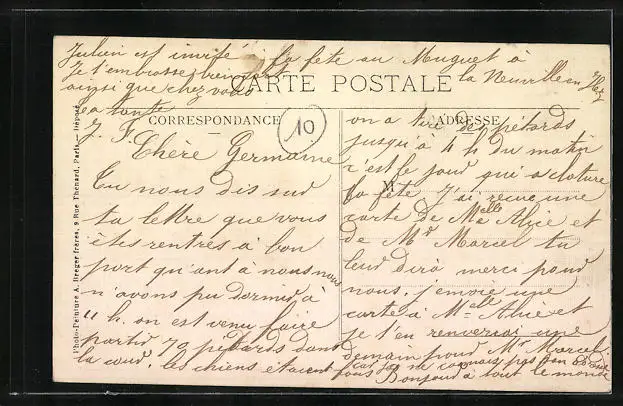 Julien est invité à la fête au Muguet à
la Neuville en Hez
Je t'embrasse bien fort
ainsi que chez vous
ta tante
J. F.
CARTE POSTALE
CORRESPONDANCE
10
ADRESSE
M
Photo-Peinture A. Breger frères, 9 Rue Thénard, Paris. — Déposé
Chère Germaine
Tu nous dis sur
ta lettre que vous
êtes rentrés à bon
port qu'ant à nous nous
n'avons pu dormir à
11 h. on est venu faire
partir 70 pétards dans
la cour. les chiens étaient fous
on a tiré des pétards
jusqu'à 4 h du matin
c'est le jour qui a cloturé
la fête J'ai reçue une
carte de Melle Alice et
de Mr Marcel tu
leur dira merci pour
nous. j'envoie une
carte à Melle Alice et
je t'en renverrai une
demain pour Mr Marcel.
car je ne connais pas son
Bonjour à tout le monde